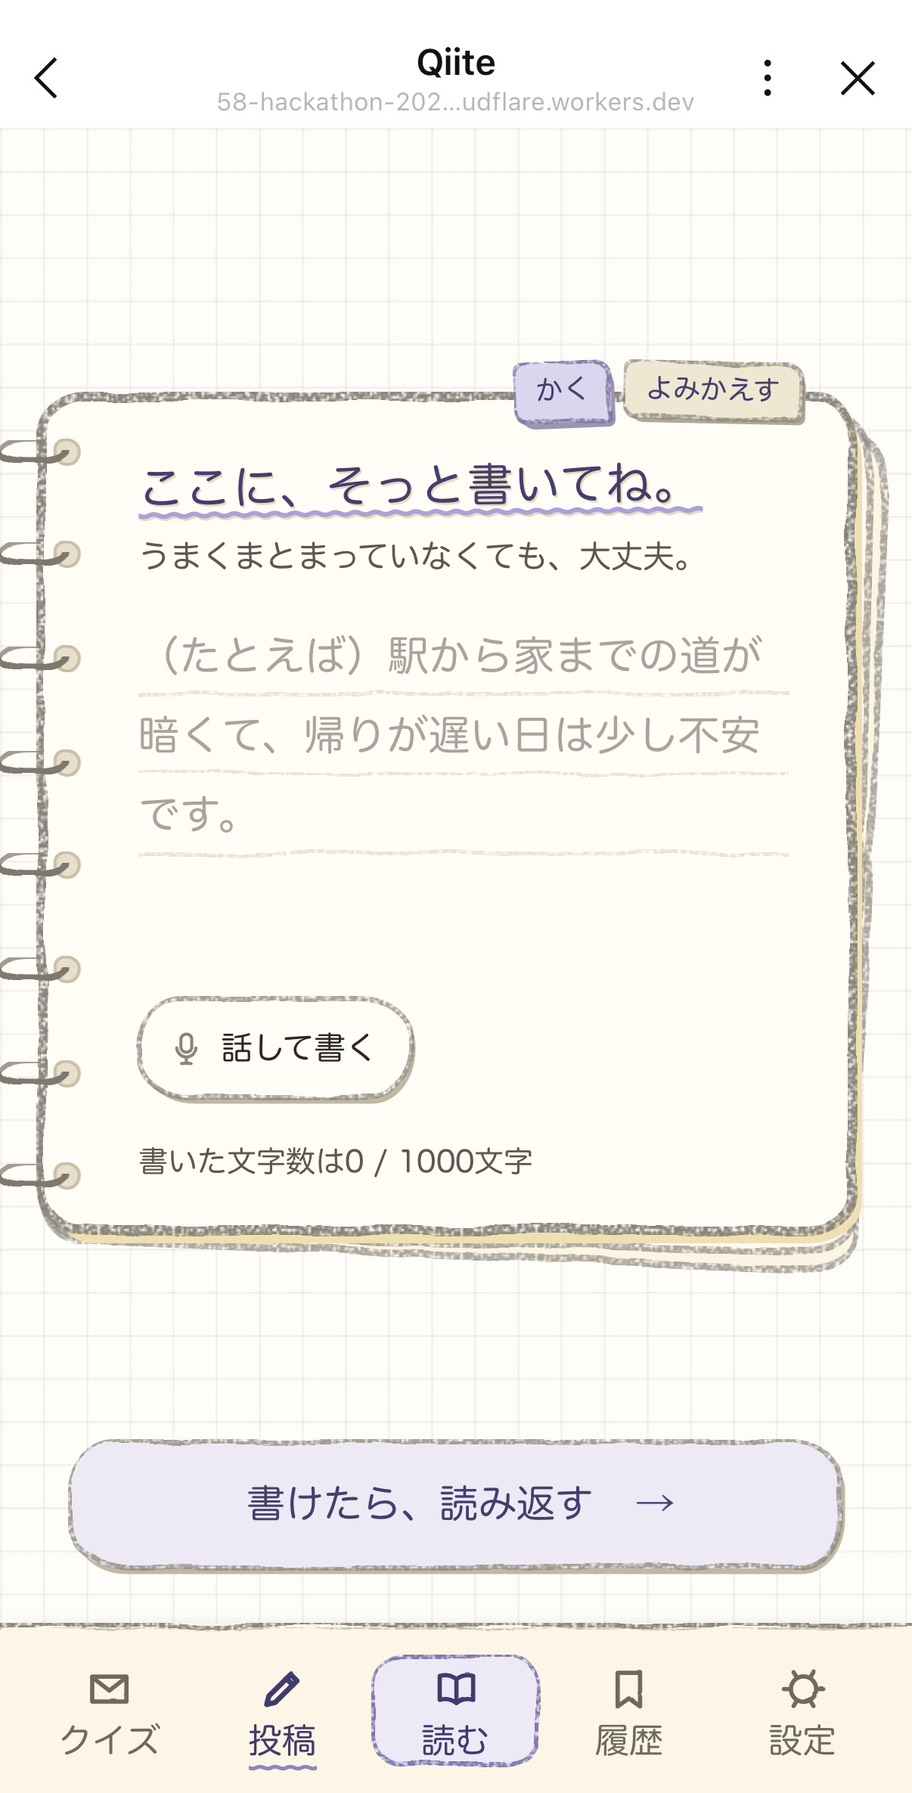 Qiite
58-hackathon-202...udflare.workers.dev
かく
よみかえす
ここに、そっと書いてね。
うまくまとまっていなくても、大丈夫。
（たとえば）駅から家までの道が
暗くて、帰りが遅い日は少し不安
です。
話して書く
書いた文字数は0 / 1000文字
書けたら、読み返す →
クイズ
投稿
読む
履歴
設定